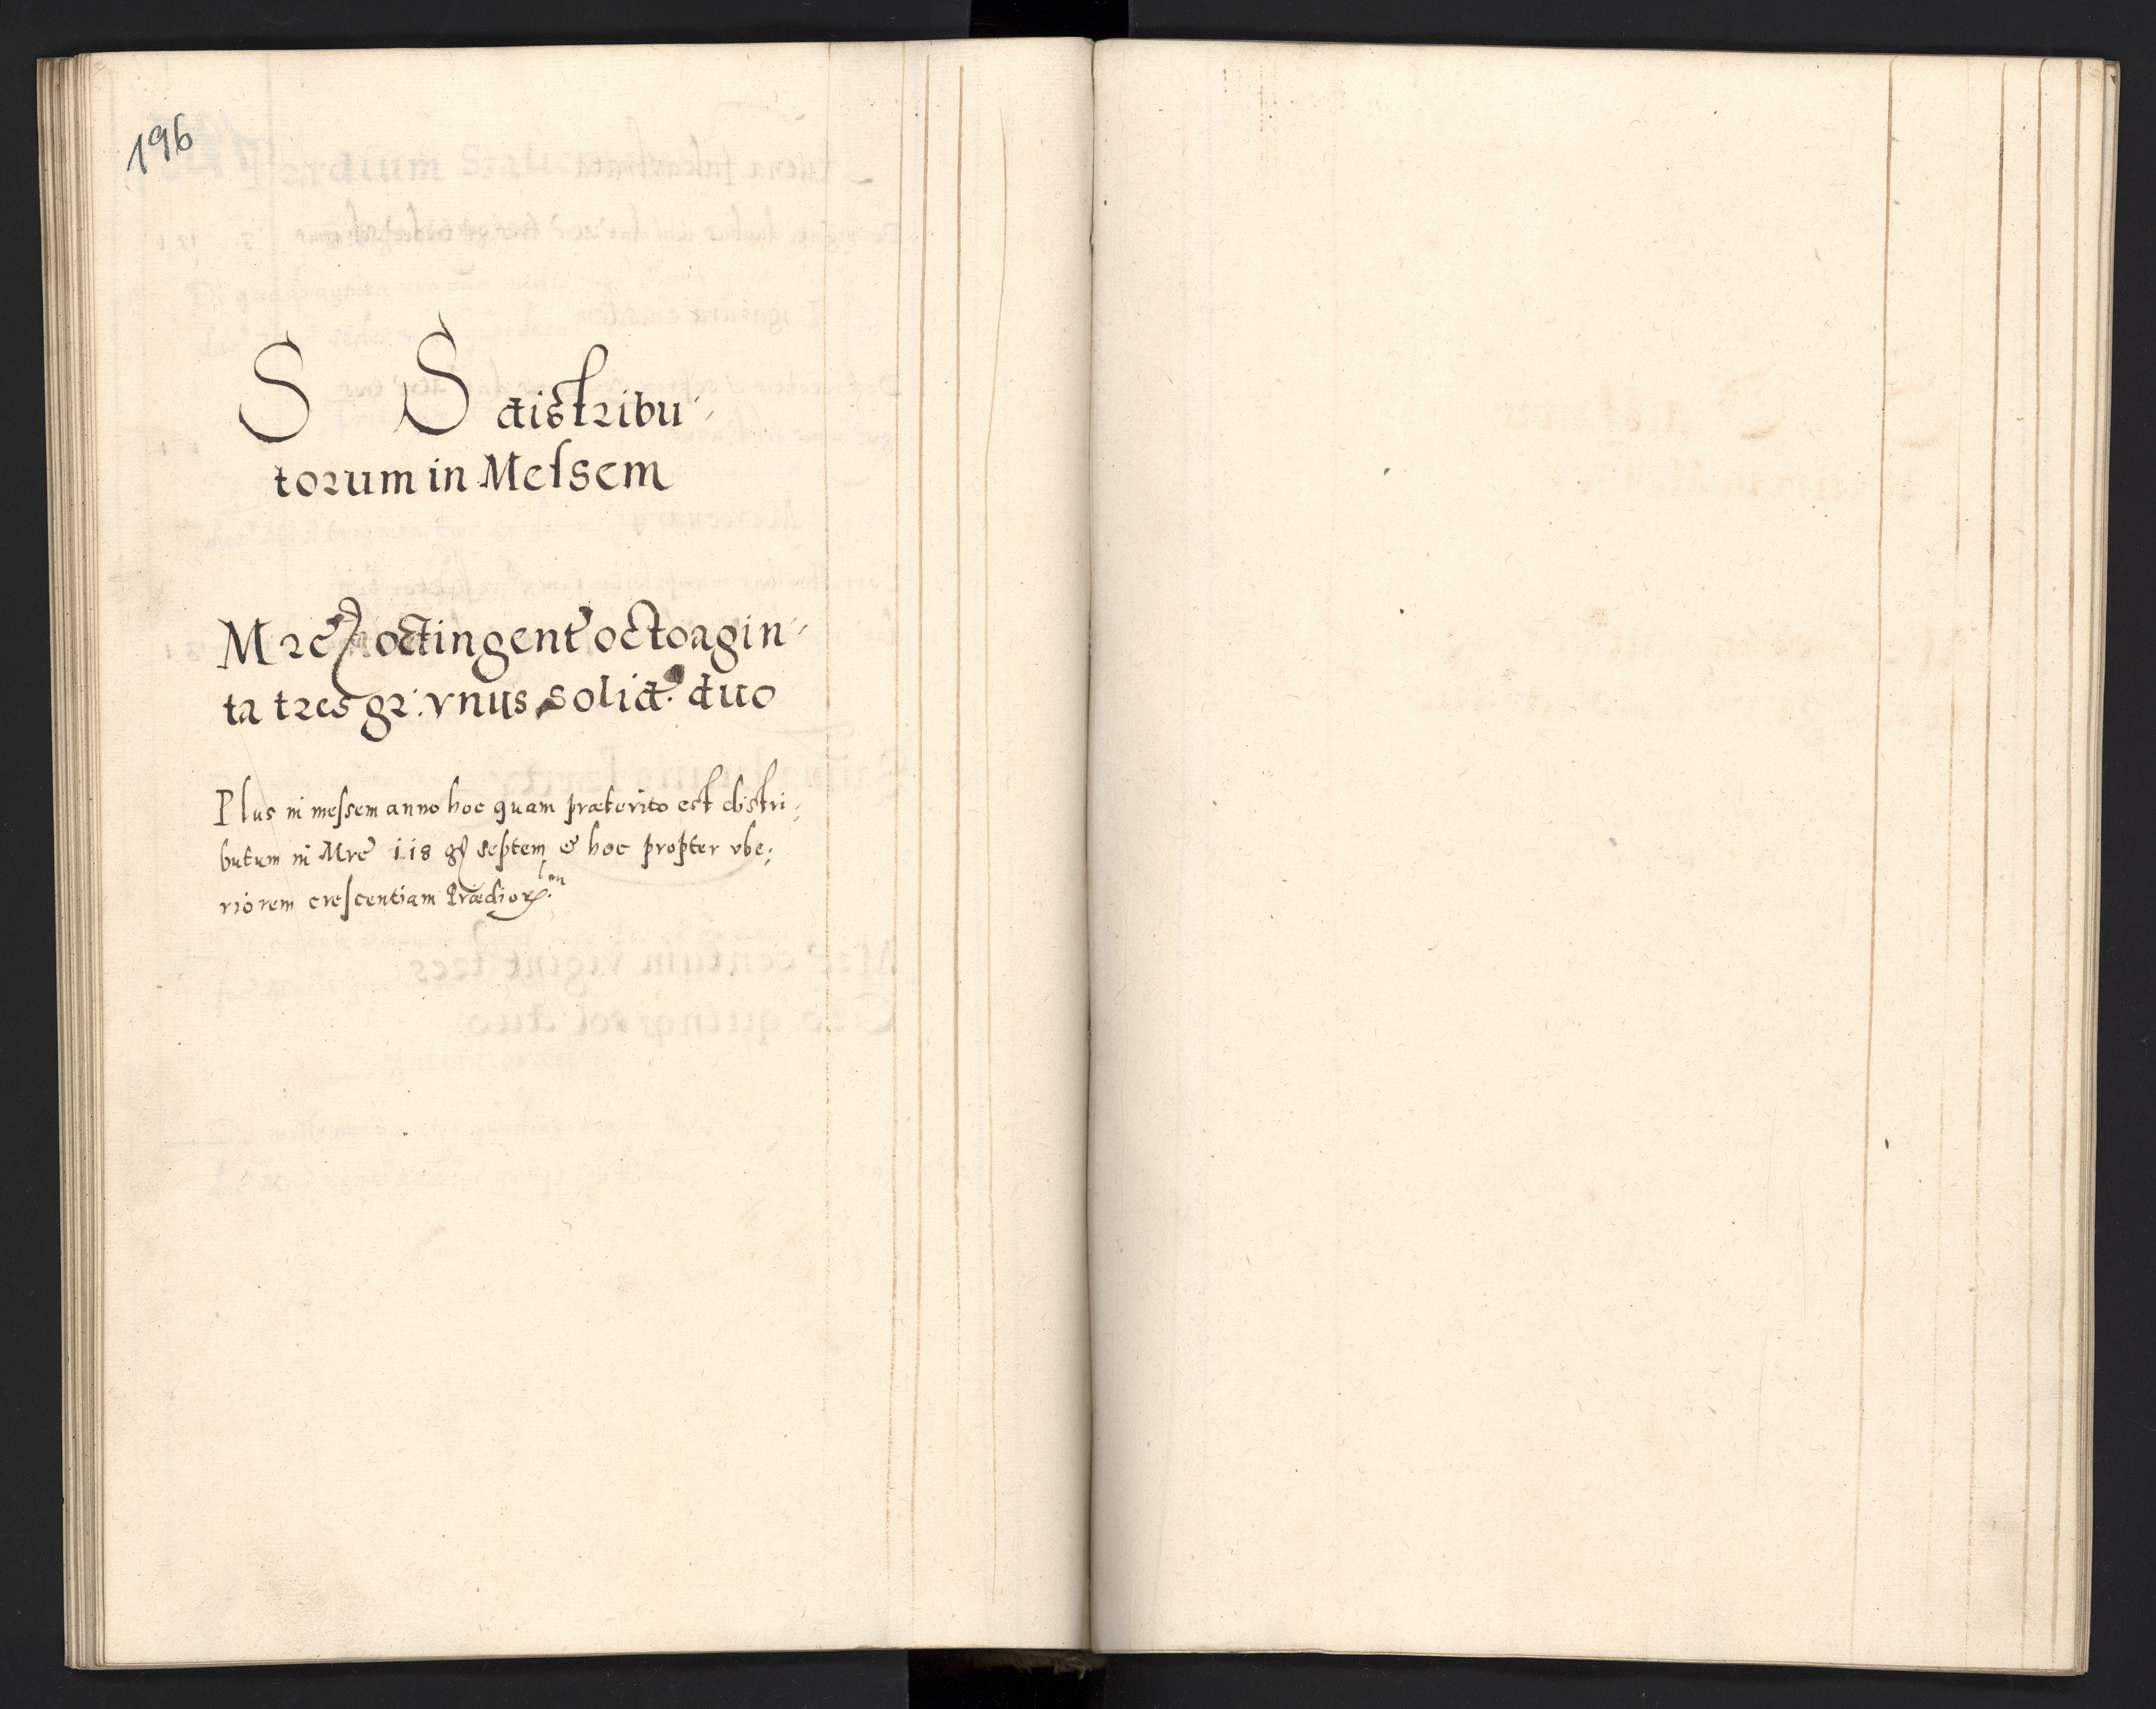 196
S S distribu⸗
torum in Messem
Mrc̃ octingent octoagin⸗
ta tres gr: vnus solid: duo
Plus in messem anno hoc quam præterito est distri⸗
butum in Mrc̃ 118 gr septem & hoc propter vbe⸗
riorem crescentiam Prædior̃